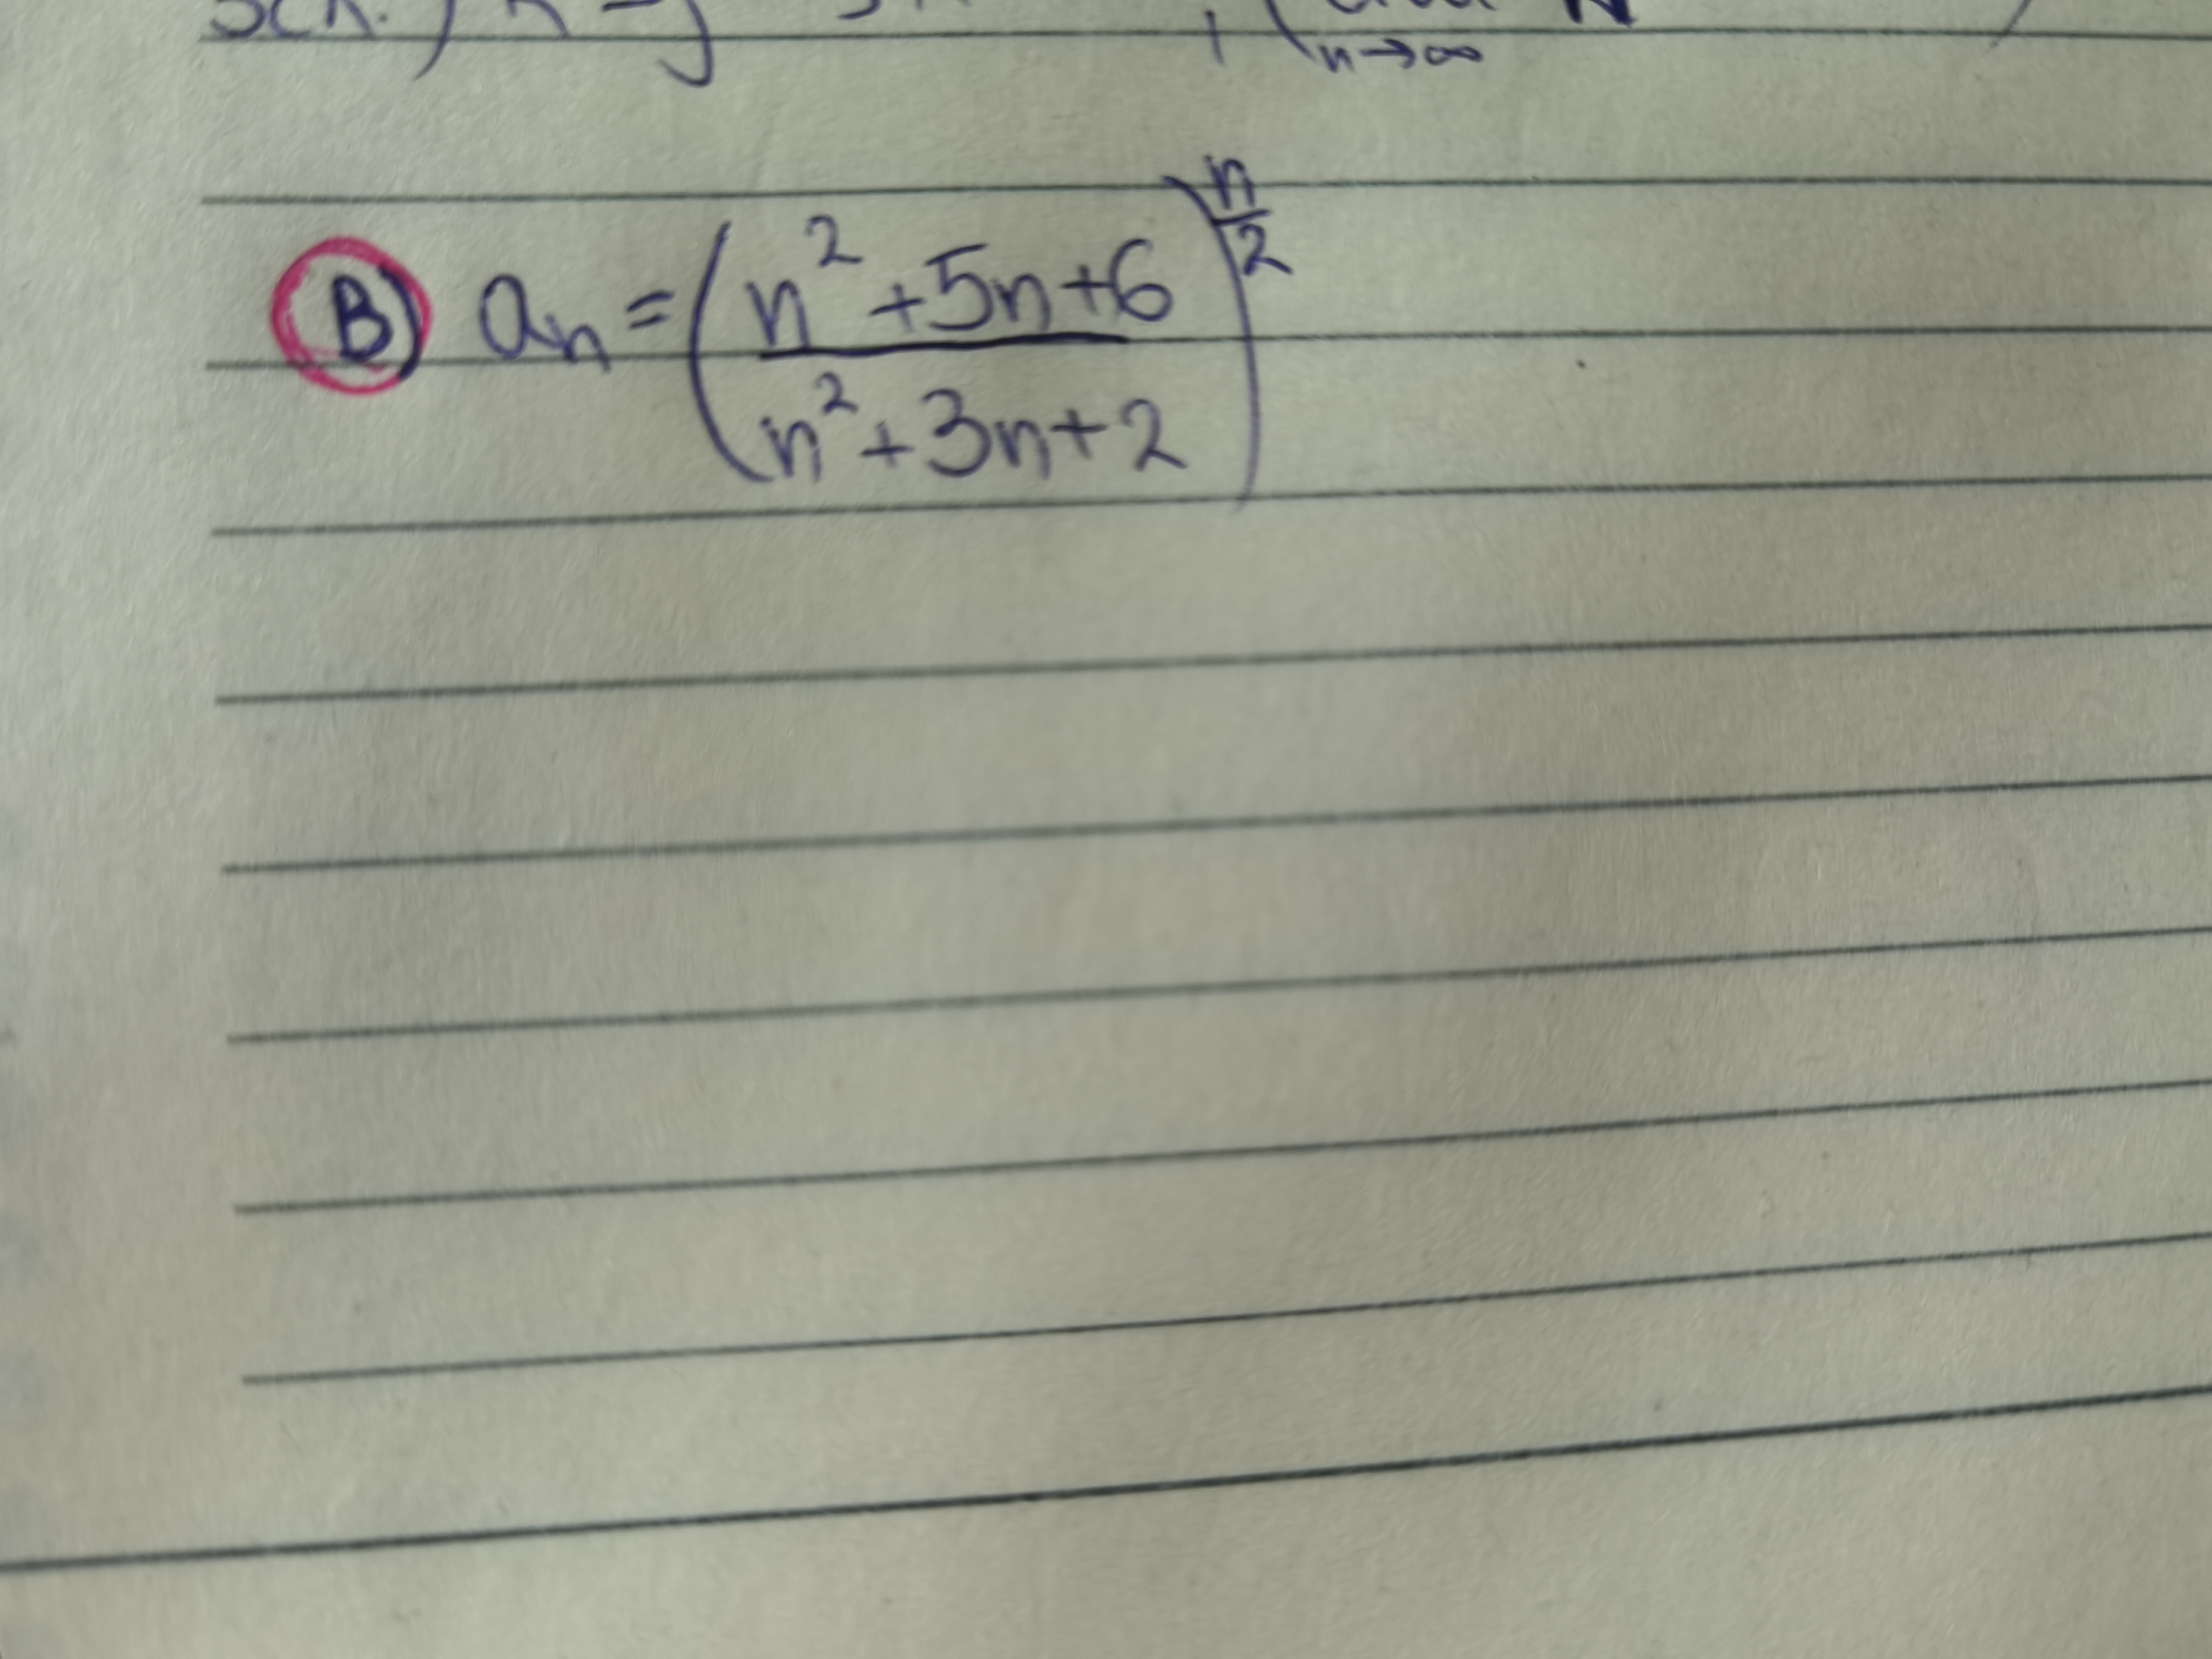 n→∞
B) aₙ = ( (n² + 5n + 6) / (n² + 3n + 2) )^(n/2)